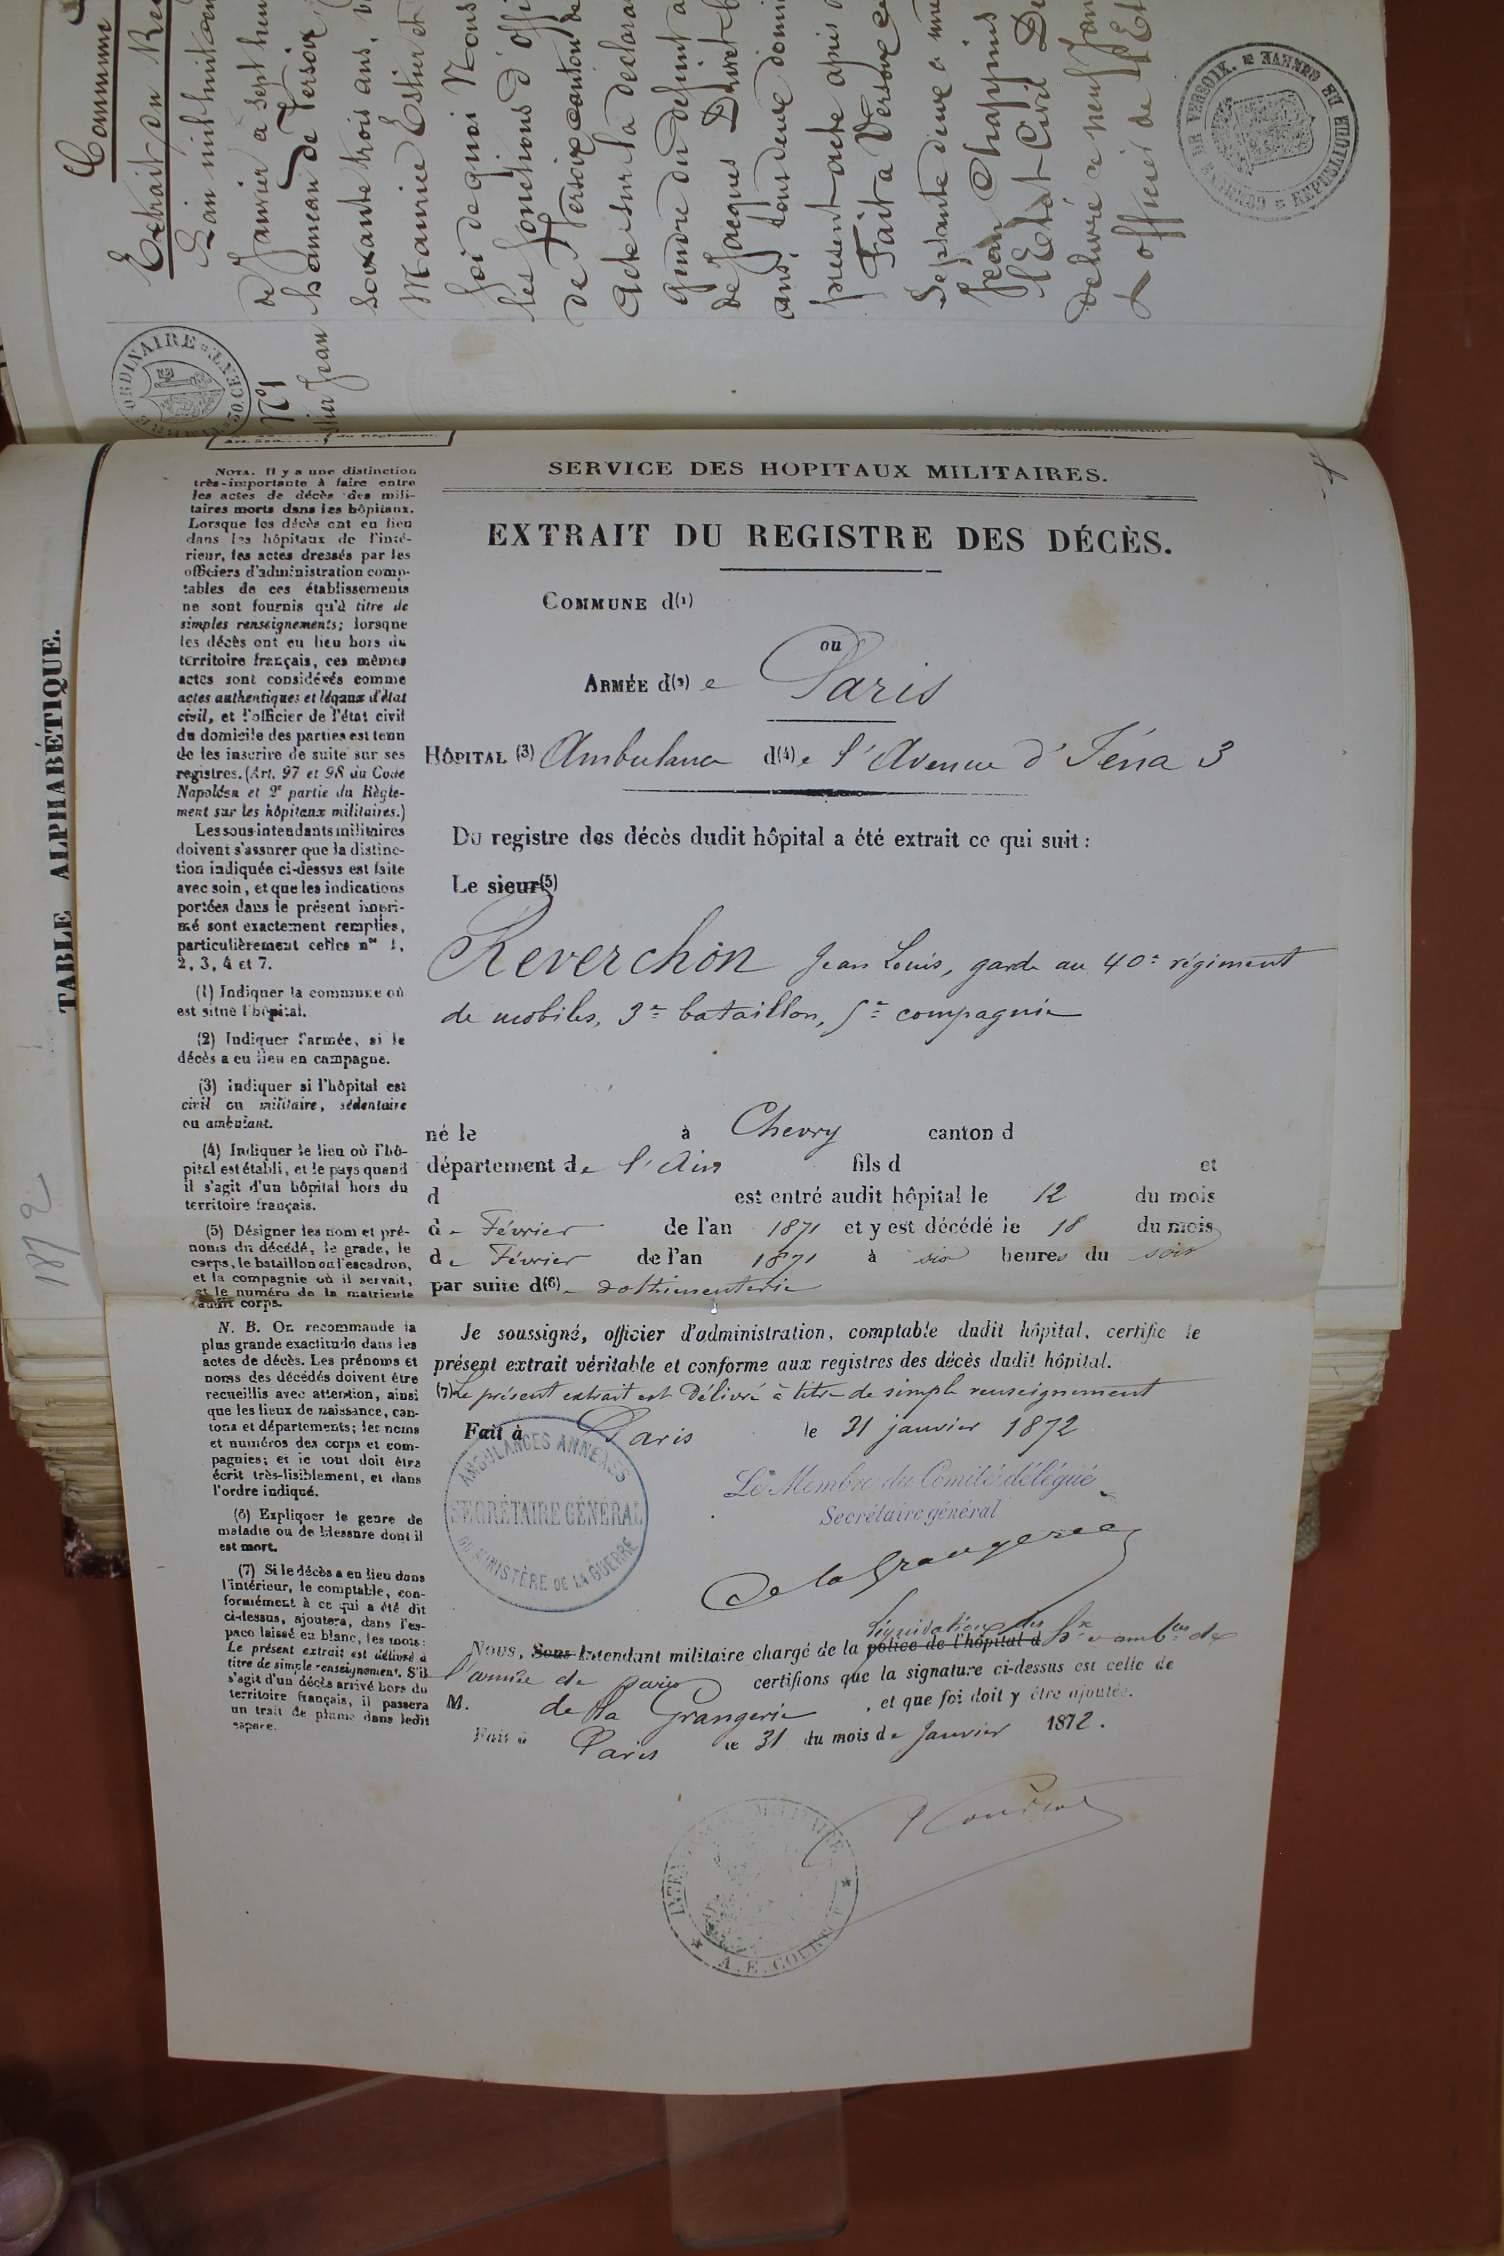 SERVICE DES HOPITAUX MILITAIRES.
EXTRAIT DU REGISTRE DES DÉCÈS.
COMMUNE d(1)
ou
ARMÉE d(2) e Paris
HÔPITAL (3) Ambulance d(4) e l'Avenue d'Iéna 3
Du registre des décès dudit hôpital a été extrait ce qui suit :
Le sieur (5)
Reverchon Jean Louis, garde au 40e régiment
de mobiles, 3e bataillon, 5e compagnie
né le à Chevry canton d
département de l'Ain fils d et
d est entré audit hôpital le 12 du mois
de Février de l'an 1871 et y est décédé le 18 du mois
de Février de l'an 1871 à six heures du soir
par suite d(6)e dothienenterie
Je soussigné, officier d'administration, comptable dudit hôpital, certifie le
présent extrait véritable et conforme aux registres des décès dudit hôpital.
(7) Le présent extrait est Délivré à titre de simple renseignement
Fait à Paris le 31 janvier 1872
AMBULANCES ANNEXES
SECRÉTAIRE GÉNÉRAL
DU MINISTÈRE DE LA GUERRE
Le Membre du Comité délégué
Secrétaire général
De la Grangerie
liquidation des
Nous, Sous-Intendant militaire chargé de la police de l'hôpital d hx et ambces de
l'armée de paris certifions que la signature ci-dessus est celle de
M. de la Grangerie, et que foi doit y être ajoutée.
Fait à Paris le 31 du mois de Janvier 1872.
INTENDANCE MILITAIRE
A. E. COURTOT
NOTA. Il y a une distinction
très-importante à faire entre
les actes de décès des mili-
taires morts dans les hôpitaux.
Lorsque les décès ont eu lieu
dans les hôpitaux de l'inté-
rieur, les actes dressés par les
officiers d'administration comp-
tables de ces établissements
ne sont fournis qu'à titre de
simples renseignements; lorsque
les décès ont eu lieu hors du
territoire français, ces mêmes
actes sont considérés comme
actes authentiques et légaux d'état
civil, et l'officier de l'état civil
du domicile des parties est tenu
de les inscrire de suite sur ses
registres. (Art. 97 et 98 du Code
Napoléon et 2e partie du Règle-
ment sur les hôpitaux militaires.)
Les sous-intendants militaires
doivent s'assurer que la distinc-
tion indiquée ci-dessus est faite
avec soin, et que les indications
portées dans le présent impri-
mé sont exactement remplies,
particulièrement celles nos 1,
2, 3, 4 et 7.
(1) Indiquer la commune où
est situé l'hôpital.
(2) Indiquer l'armée, si le
décès a eu lieu en campagne.
(3) Indiquer si l'hôpital est
civil ou militaire, sédentaire
ou ambulant.
(4) Indiquer le lieu où l'hô-
pital est établi, et le pays quand
il s'agit d'un hôpital hors du
territoire français.
(5) Désigner les nom et pré-
noms du décédé, le grade, le
corps, le bataillon ou l'escadron,
et la compagnie où il servait,
et le numéro de la matricule
audit corps.
N. B. On recommande la
plus grande exactitude dans les
actes de décès. Les prénoms et
noms des décédés doivent être
recueillis avec attention, ainsi
que les lieux de naissance, can-
tons et départements; les noms
et numéros des corps et com-
pagnies; et le tout doit être
écrit très-lisiblement, et dans
l'ordre indiqué.
(6) Expliquer le genre de
maladie ou de blessure dont il
est mort.
(7) Si le décès a eu lieu dans
l'intérieur, le comptable, con-
formément à ce qui a été dit
ci-dessus, ajoutera, dans l'es-
pace laissé en blanc, les mots:
Le présent extrait est délivré à
titre de simple renseignement. S'il
s'agit d'un décès arrivé hors du
territoire français, il passera
un trait de plume dans ledit
espace.
TABLE ALPHABÉTIQUE.
1872
Commune
Extrait du Re
L'an mil huit cent
de Janvier à sept heu
hameau de Versoix
soixante trois ans,
Maurice Estier et
foi de quoi Nous
les fonctions d'offi
de Versoix canton de
Acte sur la déclara
gendre du défunt a
de Jacques
ans, tous deux domi
présent acte après
Fait à Versoix ce
Septante deux a une
Jean Chappuis
l'Etat Civil De
Delivré ce neuf Jan
L'officier de l'Et
N°1
Estier Jean
ORDINAIRE
50 CENT.
COMMUNE DE VERSOIX.
REPUBLIQUE DE GENEVE